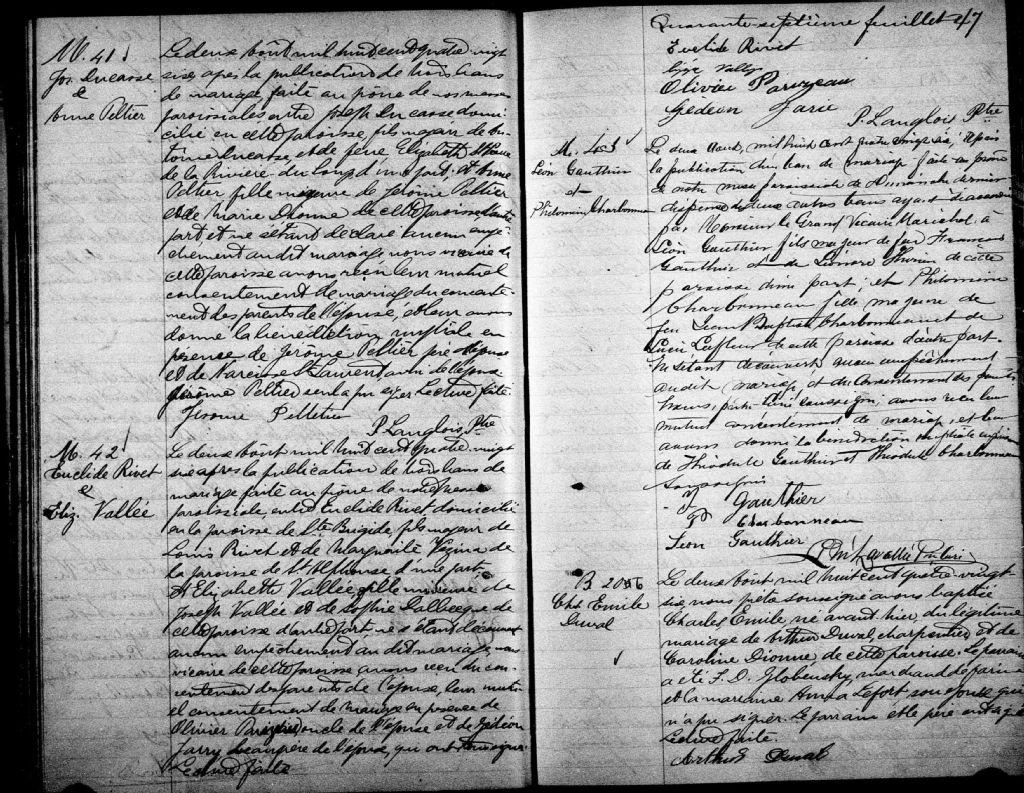 M. 41
Jos. Lucasse
&
Anne Peltier
Le deux août mil huit cent quatre vingt
six, après la publication de trois bans
de mariage faite au prône de nos messes
paroissiales entre Joseph Lucasse domi-
cilié en cette paroisse, fils majeur de
Lucasse, et de feue Elizabeth
de la Rivière du Loup d'une part. Et Anne
Peltier fille mineure de Jérôme Peltier
et de Marie Dionne de cette paroisse d'autre
part, et ne s'étant déclaré aucun empê-
chement au dit mariage nous vicaire de
cette paroisse avons reçu leur mutuel
consentement de mariage du consente-
ment des parents de l'épouse, et leur avons
donné la bénédiction nuptiale en
présence de Jérôme Peltier père de l'épouse
et de Narcisse St Laurent ami de l'époux
Jérôme Peltier seul a pu signer Lecture faite.
Jérome Pelletier
P. Langlois Ptre
M. 42
Euclide Rivet
&
Eliz. Vallée
Le deux août mil huit cent quatre vingt
six après la publication de trois bans de
mariage faite au prône de notre messe
paroissiale entre Euclide Rivet domicilié
en la paroisse de Ste Brigide, fils majeur de
Louis Rivet et de Marguerite Vézina de
la paroisse de St Alphonse d'une part.
Et Elizabeth Vallée, fille mineure de
Joseph Vallée et de Sophie Dalbecque de
cette paroisse d'autre part, ne s'étant découvert
aucun empêchement au dit mariage, nous
vicaire de cette paroisse avons reçu du con-
sentement des parents de l'épouse, leur mutu-
el consentement de mariage en présence de
Olivier oncle de l'épouse et de Gédéon
Jarry beaupère de l'épouse, qui ont signé
Lecture faite
Quarante-septième feuillet 47
Evelide Rivet
Vallee
Olivier Parizeau
Gédéon Jarie
P. Langlois Ptre
M.
Léon Gauthier
et
Philomine Charbonneau
Le deux Août, mil huit cent quatre vingt six, après
la publication d'un ban de mariage faite au prône
de notre messe paroissiale de Dimanche dernier
dispense de deux autres bans ayant été accordée
par Monsieur le Grand Vicaire Maréchal à
Léon Gauthier fils majeur de feu François
Gauthier et de Léonore de cette
paroisse d'une part; et Philomine
Charbonneau fille majeure de
feu Jean Baptiste Charbonneau et de
Lucie Lafleur de cette paroisse d'autre part.
N's'étant découvert aucun empêchement
au dit mariage et du consentement des parents
nous, prêtre Curé soussigné, avons reçu leur
mutuel consentement de mariage, et leur
avons donné la bénédiction nuptiale en présence
de Théodule Gauthier et Théodule Charbonneau
soussignés
Gauthier
Charbonneau
Léon Gauthier
B 206
Chs Emile
Duval
Le deux août mil huit cent quatre-vingt-
six, nous prêtre soussigné avons baptisé
Charles Emile, né avant hier, du légitime
mariage de Arthur Duval, charpentier et de
Caroline Dionne de cette paroisse. Le parrain
a été F. O. Globensky, marchand de farine
et la marraine Anna Lefort, son épouse qui
n'a pu signer. Le parrain et le père ont signé
Lecture faite.
Arthur Duval